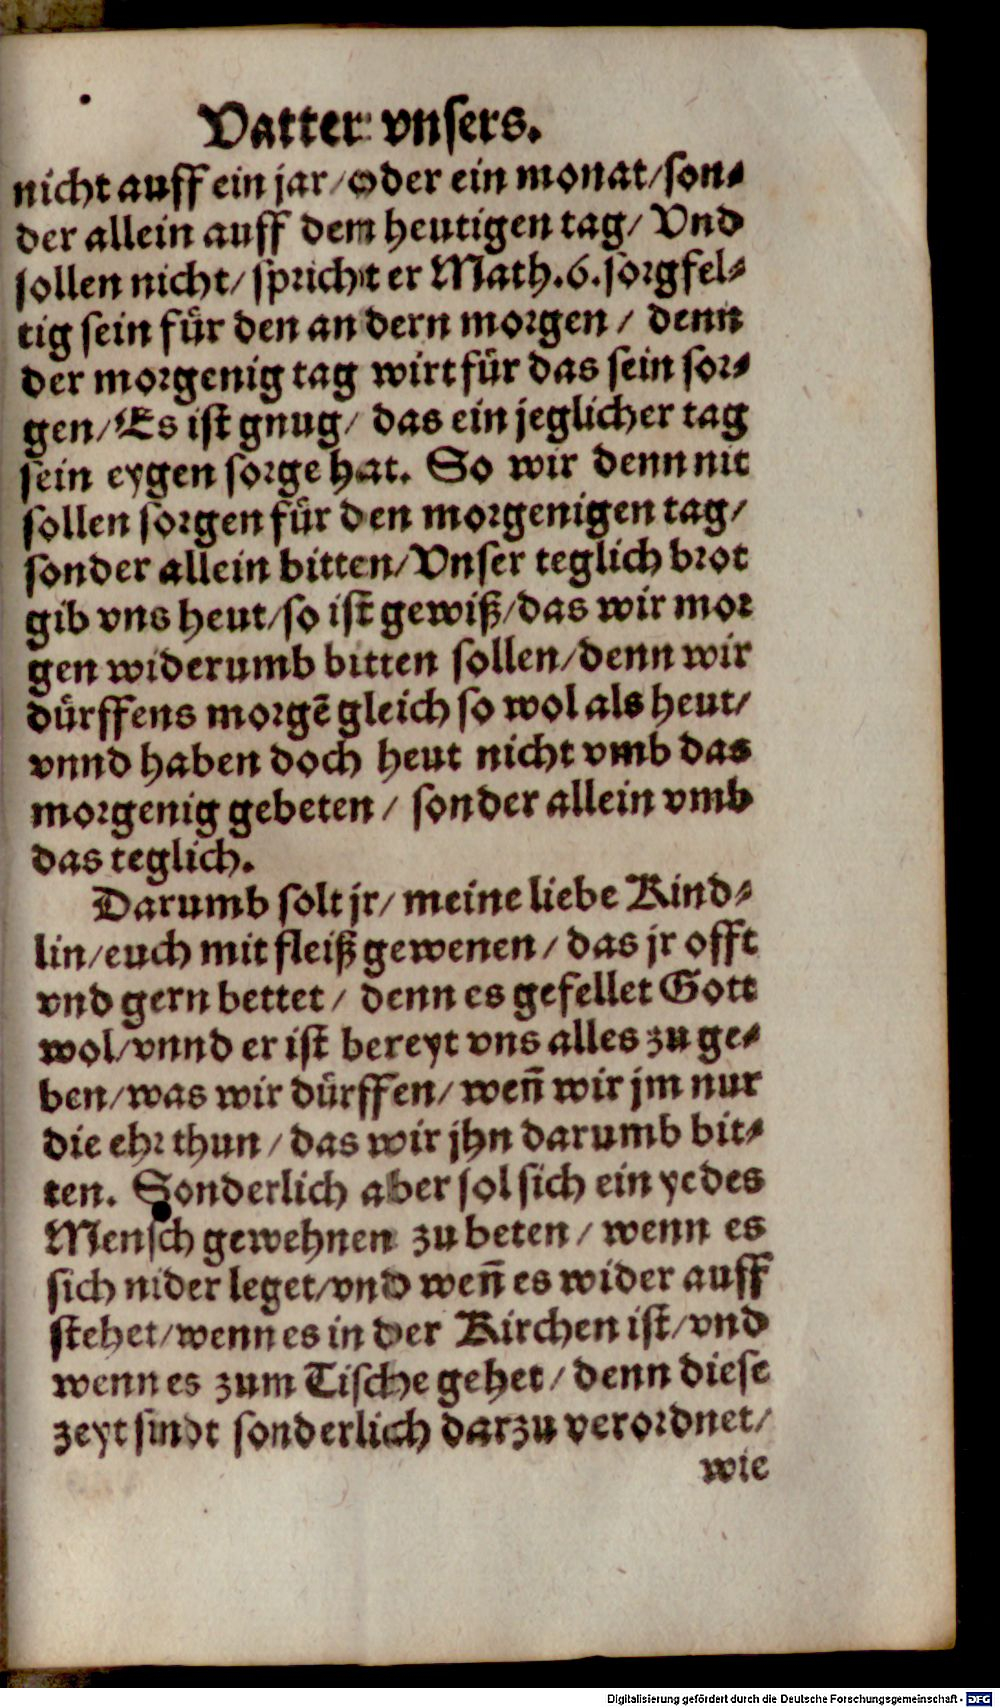 Vatter vnsers.
nicht auff ein jar/ oder ein monat/ son⸗
der allein auff dem heutigen tag/ Vnd
sollen nicht/ spricht er Math. 6. sorgfel⸗
tig sein für den andern morgen/ denn
der morgenig tag wirt für das sein sor⸗
gen/ Es ist gnug/ das ein jeglicher tag
sein eygen sorge hat. So wir denn nit
sollen sorgen für den morgenigen tag/
sonder allein bitten/ Vnser teglich brot
gib vns heut/ so ist gewiß/ das wir mor
gen widerumb bitten sollen/ denn wir
dürffens morgē gleich so wol als heut/
vnnd haben doch heut nicht vmb das
morgenig gebeten/ sonder allein vmb
das teglich.
Darumb solt jr/ meine liebe Kind⸗
lin/ euch mit fleiß gewenen/ das jr offt
vnd gern bettet/ denn es gefellet Gott
wol/ vnnd er ist bereyt vns alles zu ge⸗
ben/ was wir dürffen/ wen̄ wir jm nur
die ehr thun/ das wir jhn darumb bit⸗
ten. Sonderlich aber sol sich ein yedes
Mensch gewehnen zu beten/ wenn es
sich nider leget/ vnd wen̄ es wider auff
stehet/ wenn es in der Kirchen ist/ vnd
wenn es zum Tische gehet/ denn diese
zeyt sindt sonderlich darzu verordnet/
wie
Digitalisierung gefördert durch die Deutsche Forschungsgemeinschaft - DFG